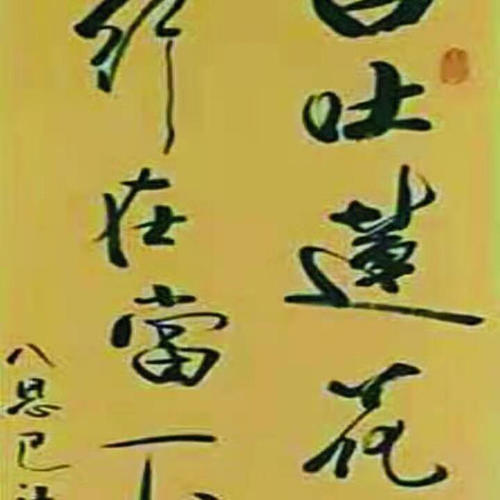 口吐蓮花
行在當下
八思巴